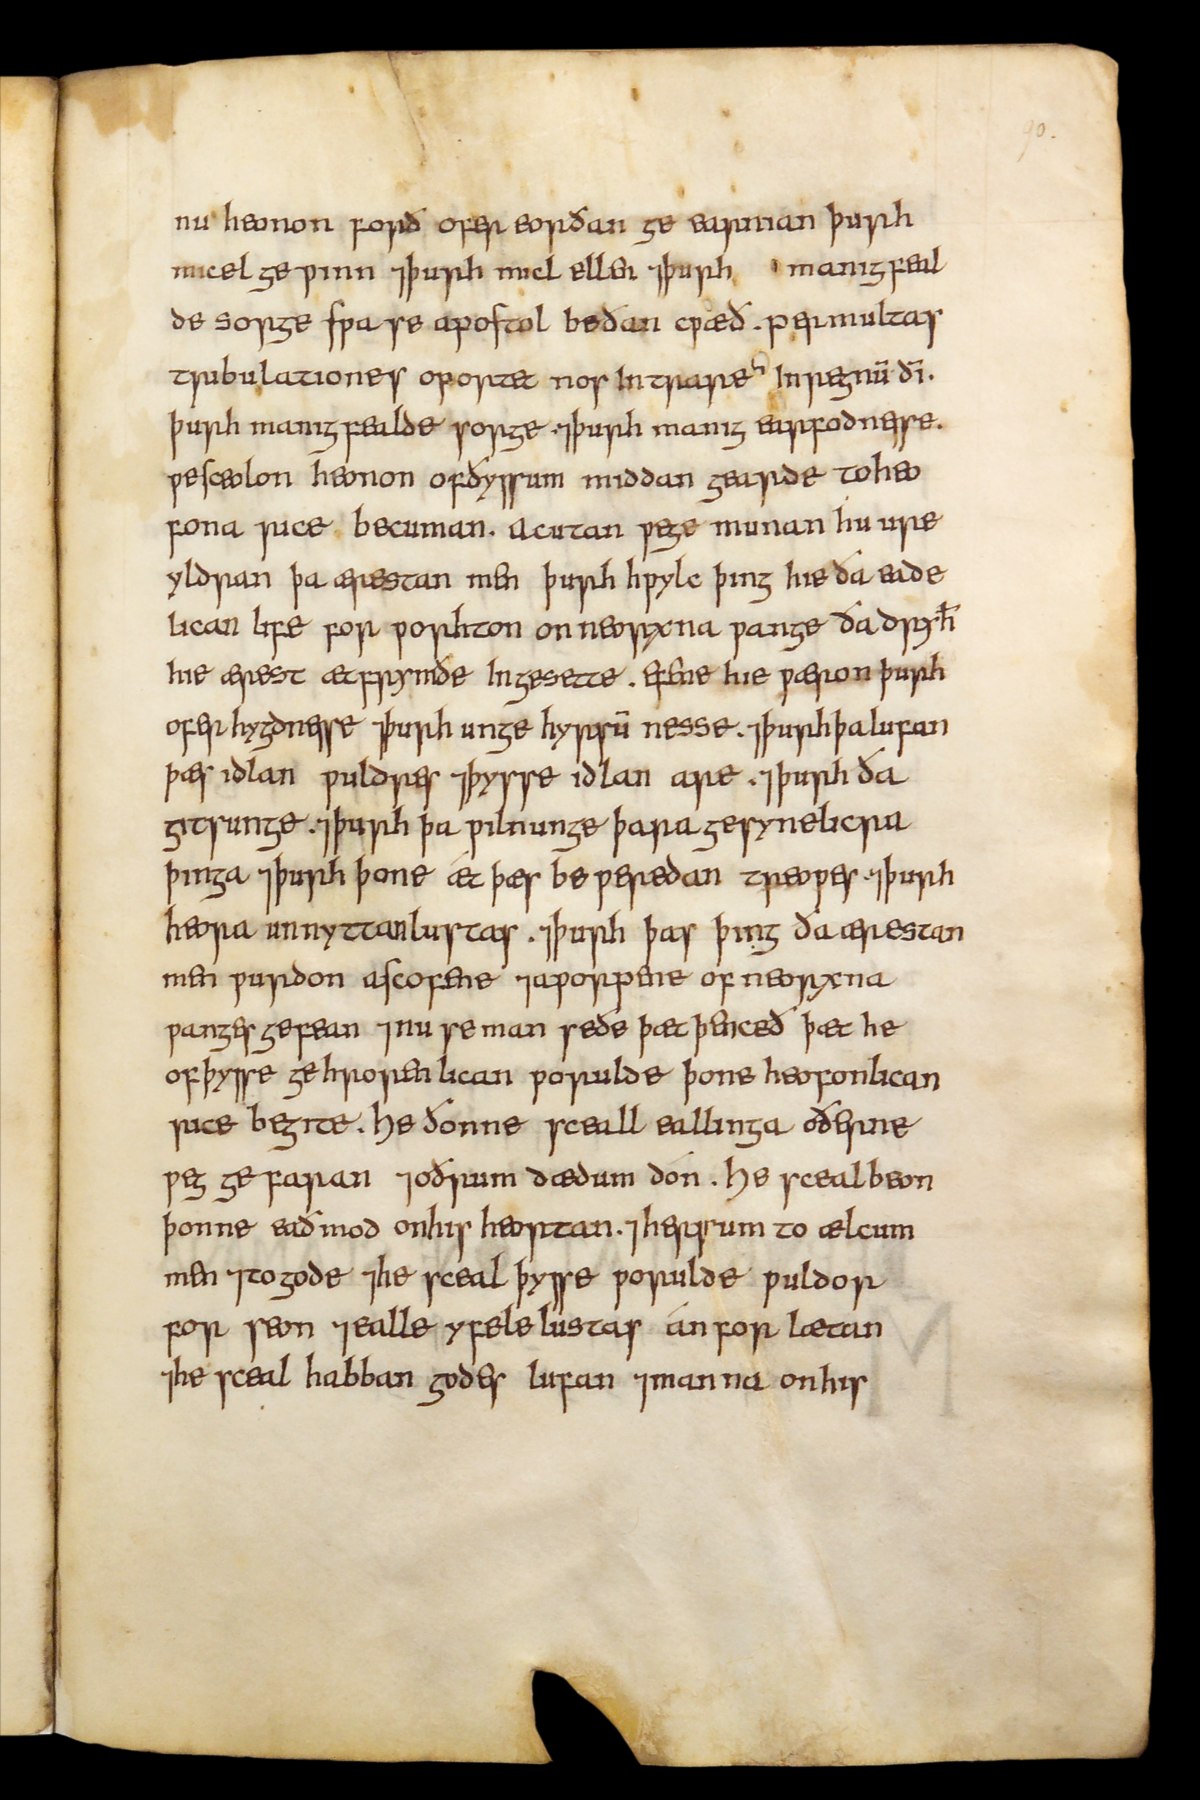 90.
nu heonon forð ofer eorðan ge earnian þurh
micel geƿinn ⁊þurh micl ellen ⁊þurh manigfeal
de sorge sƿa se apostol beðan cƿæð. Permultas
tribulationes oportet nos Intrare Inregnū dī.
þurh manigfealde sorge ⁊þurh manig earfodnesse.
ƿesceolon heonon ofðyssum middan gearde toheo
fona rice becuman. Acutan ƿege munan hu ure
yldran þa ærestan men þurh hƿylc þing hie ða eade
lican life for ƿorhton onneorxna ƿange ða dryhī
hie ærest ætfrymðe Ingesette. efene hie ƿæron þurh
ofer hygdnesse ⁊þurh unge hyrsū nesse. ⁊þurhþalufan
þæs idlan ƿuldres ⁊þysse idlan are. ⁊þurh ða
gitsunge. ⁊þurh þa ƿilnunge þara gesynelicra
þinga ⁊þurh þone ǽt þæs be ƿeredan treoƿes. ⁊þurh
heora unnyttanlustas. ⁊þurh þas þing ða ærestan
men ƿurdon ascofene ⁊aƿorpene of neorxna
ƿanges gefean ⁊nu se man seðe þæt þenceð þæt he
ofþysse gehrorenlican ƿorulde þone heofonlican
rice begite. He ðonne sceall eallinga oðerne
ƿeg ge faran ⁊oðrum dædum dón. He scealbeon
þonne eaðmod onhis heortan. ⁊hersum to ælcum
men ⁊togode ⁊he sceal þysse ƿorulde ƿuldor
for seon ⁊ealle yfele lustas án for lætan
⁊he sceal habban godes lufan ⁊manna onhis